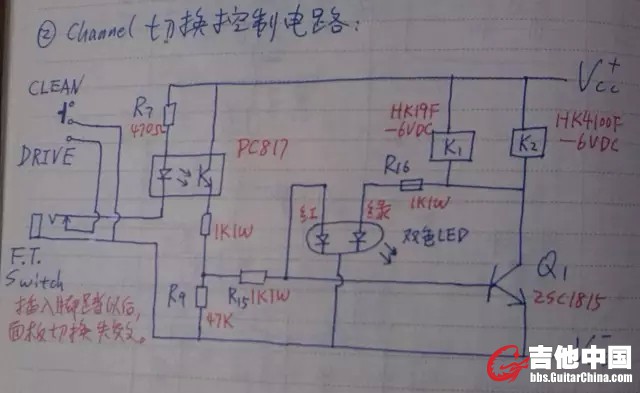 ② Channel 切换控制电路:
CLEAN
DRIVE
R7
470Ω
PC817
HK19F
-6VDC
K1
HK4100F
-6VDC
K2
Vcc+
R16
1K1W
1K1W
红
绿
双色LED
F.T.
Switch
插入脚踏以后,
面板切换失效。
R9
47K
R15 1K1W
Q1
2SC1815
吉他中国
bbs.GuitarChina.com